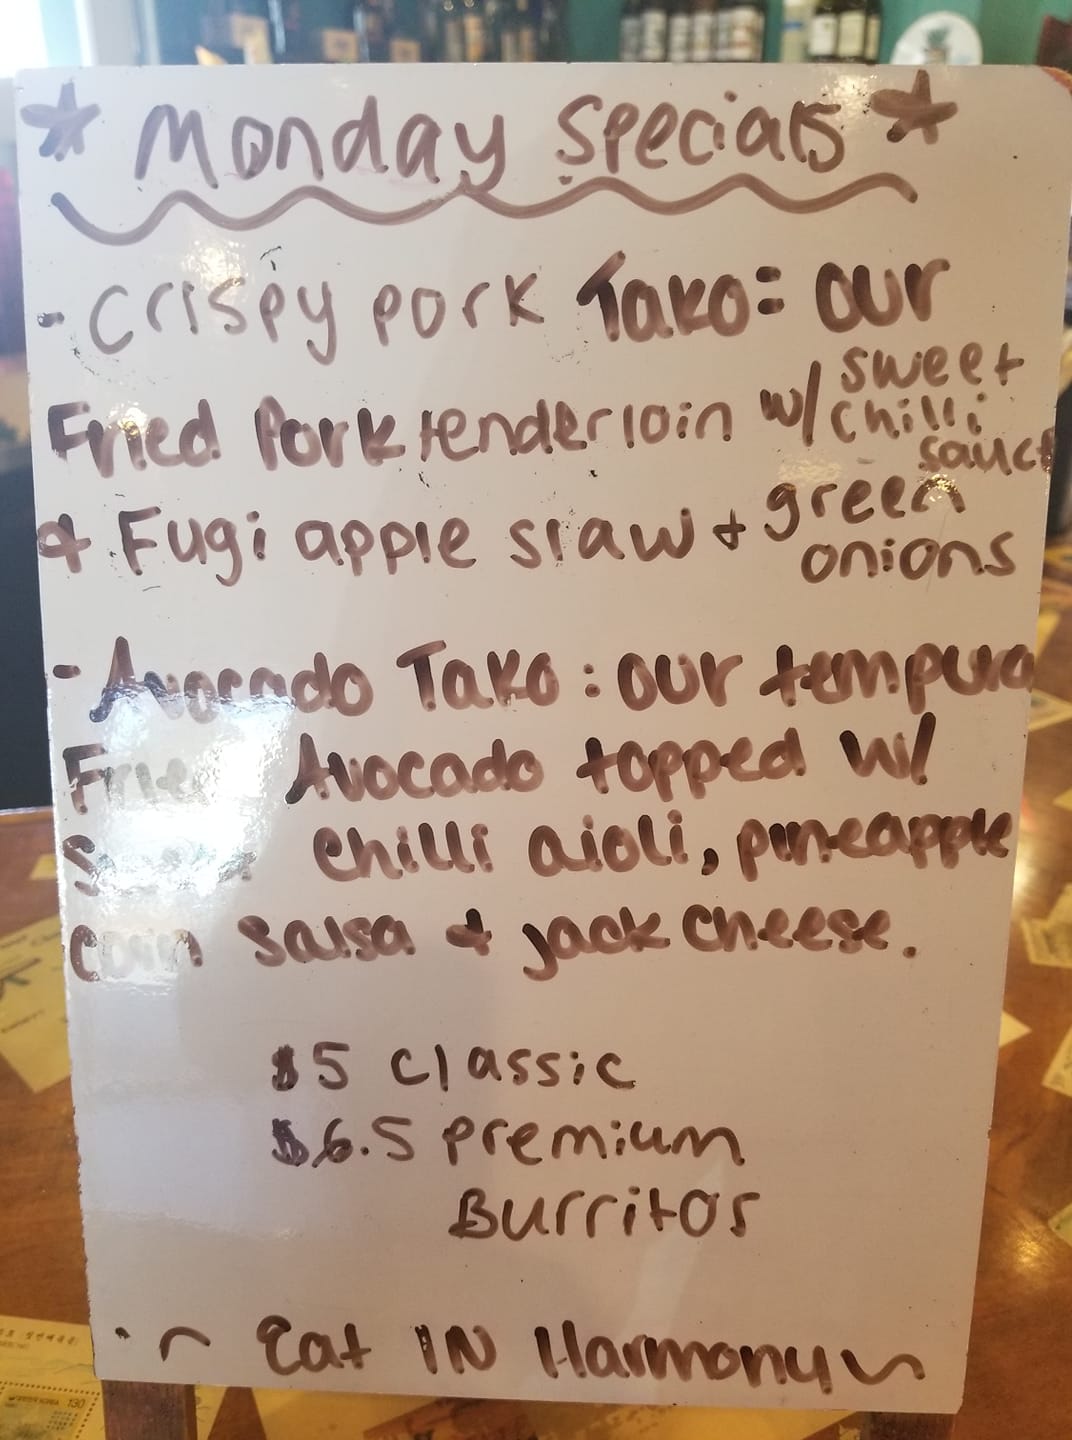 * Monday Specials *
- Crispy pork Tako: our
Fried Pork tenderloin w/ sweet chilli sauce
& Fugi apple slaw + green onions
- Avocado Tako: our tempura
Fried Avocado topped w/
chilli aioli, pineapple
corn salsa & jack cheese.
$5 classic
$6.5 premium
Burritos
~ Eat IN Harmony ~
130